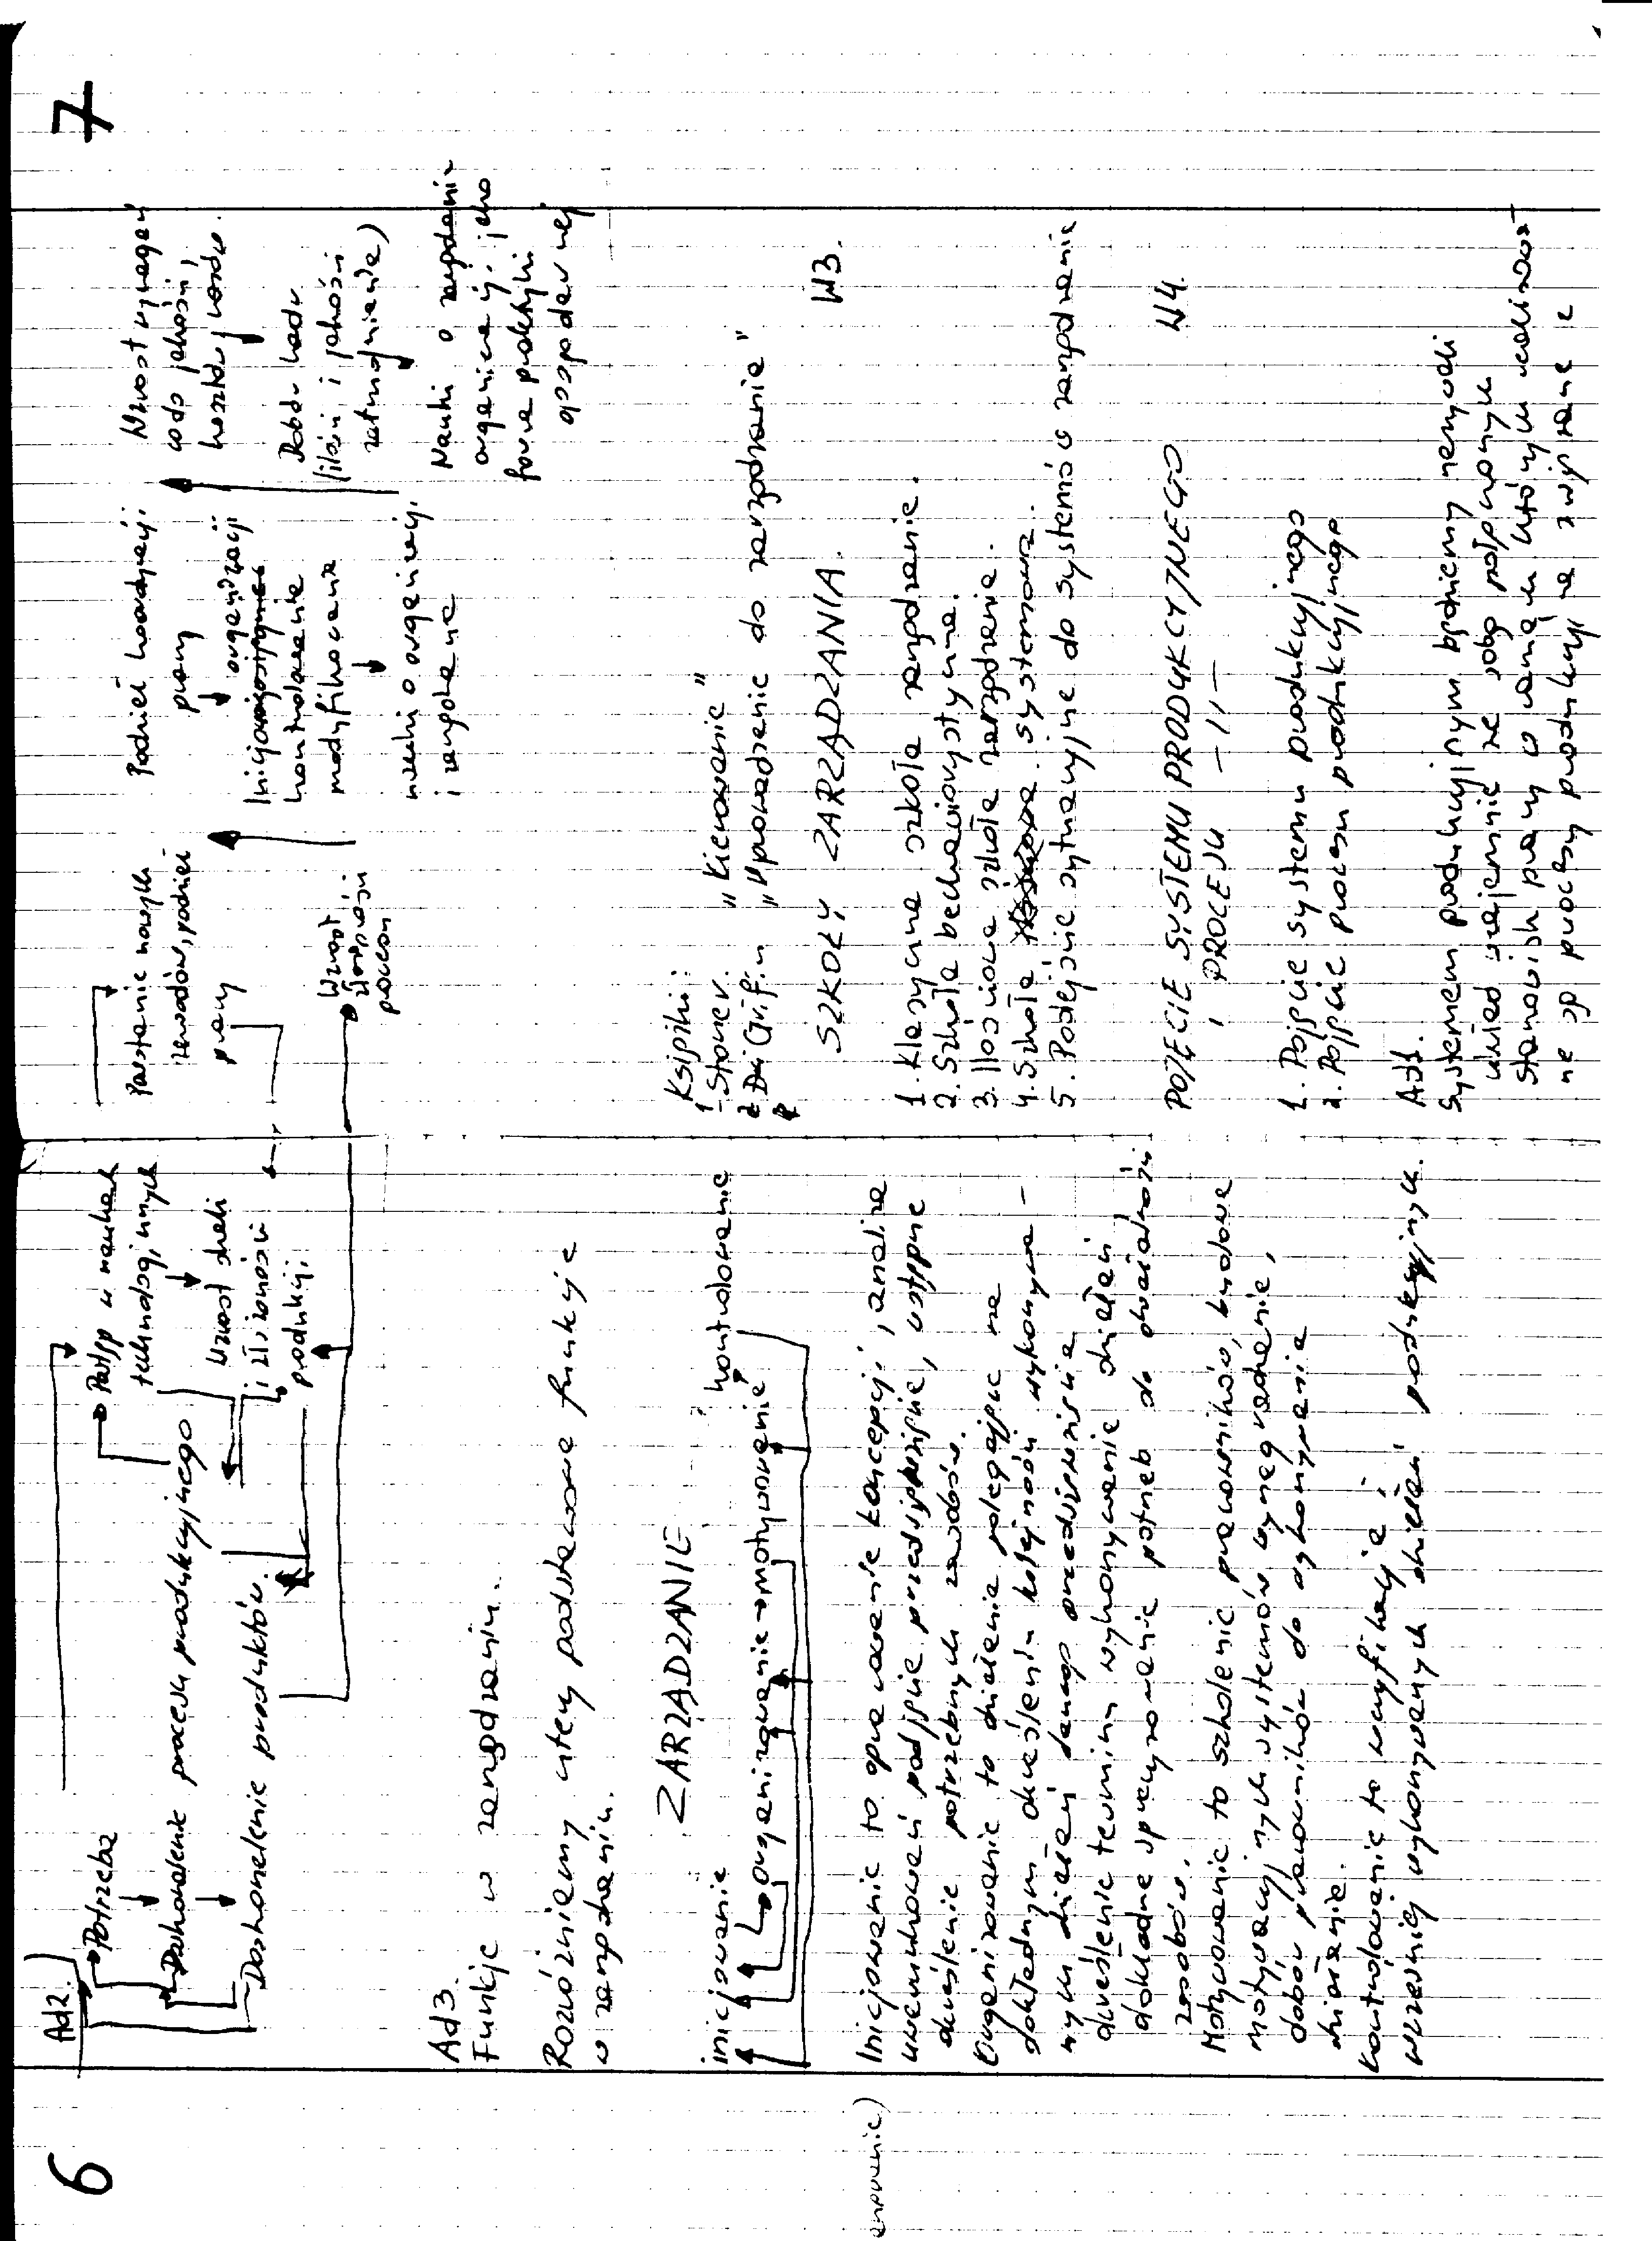 6
Ad2.
Potrzeba
Doskonalenie procesu produkcyjnego
Doskonalenie produktów.
Postęp w naukach
technologicznych
Wzrost skali
i złożoności
produkcji
Ad3.
Funkcje w zarządzaniu.
Rozróżniamy cztery podstawowe funkcje
w zarządzaniu.
ZARZĄDZANIE
inicjowanie organizowanie motywowanie kontrolowanie
Inicjowanie to opracowanie koncepcji, analiza
uwarunkowań podjęcie przedsięwzięcie, wstępne
określenie potrzebnych zasobów.
Organizowanie to działanie polegające na
dokładnym określeniu kolejności wykonywa-
nych działań danego przedsięwzięcia
określenie terminu wykonywanie działań
dokładne sprecyzowanie potrzeb do działalności
zasobów.
Motywowanie to szkolenie pracowników, budowa
motywacyjnych systemów wynagradzania,
dobór pracowników do wykonywania
działanie.
Kontrolowanie to weryfikacja
wcześniej wykonywanych działań
7
Powstanie nowych
zawodów, podział
pracy
Wzrost
złożoności
procesu
Podział koordynacji
pracy
organizacji
kontrolowanie
modyfikowanie
nauki o organizacji
i zarządzanie
Wzrost wymagań
co do jakości,
kosztu,
Dobór kadr
(ilości i jakości
zatrudnienie)
Nauki o zarządzaniu
organizacją jako
forma praktyki
gospodarczej
Książki:
1 Stoner. "Kierowanie"
2 Griffin "Wprowadzenie do zarządzanie"
SZKOŁY ZARZĄDZANIA. W3.
1. Klasyczna szkoła zarządzanie.
2. Szkoła behawiorystyczna.
3. Ilościowa szkoła zarządzanie.
4. Szkoła systemowa.
5. Podejście sytuacyjne do systemów zarządzanie
POJĘCIE SYSTEMU PRODUKCYJNEGO W4.
I PROCESU -||-
1. Pojęcie systemu produkcyjnego
2. Pojęcie procesu produkcyjnego
Ad1.
Systemem produkcyjnym będziemy nazywali
układ wzajemnie ze sobą połączonych
stanowisk pracy w ramach których realizowa-
ne są procesy produkcyji na związane z